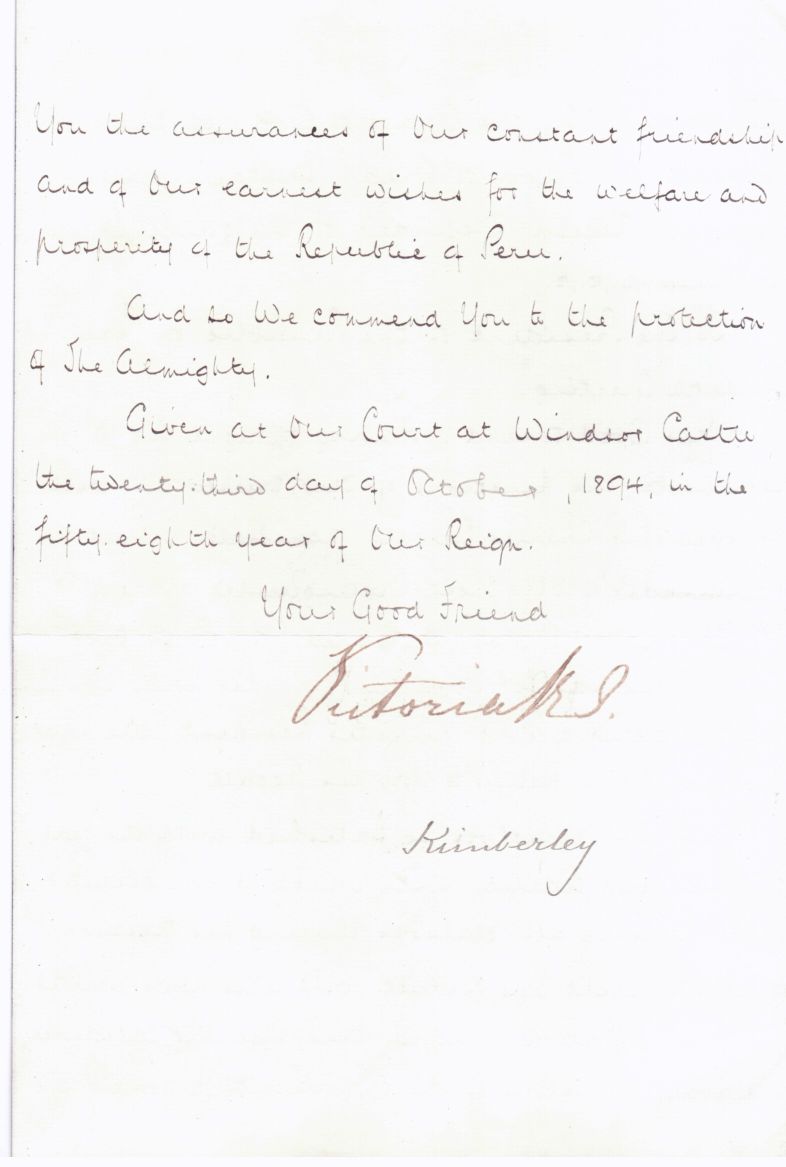 You the assurances of Our constant friendship
and of Our earnest wishes for the welfare and
prosperity of the Republic of Peru.
And so We commend You to the protection
of The Almighty.
Given at Our Court at Windsor Castle
the twenty-third day of October, 1894, in the
fifty-eighth year of Our Reign.
Your Good Friend
Victoria R I.
Kimberley